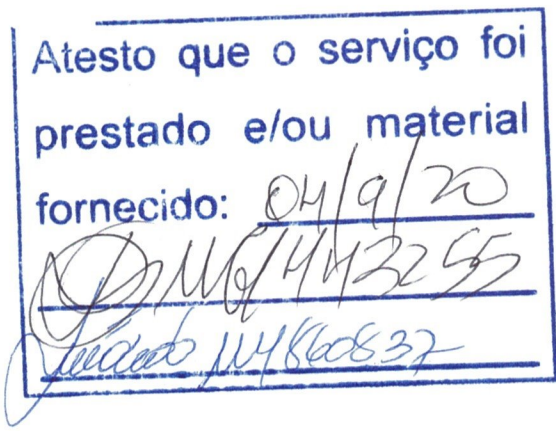 Atesto que o serviço foi
prestado e/ou material
fornecido: 04/9/20
MG/443255
M1860837